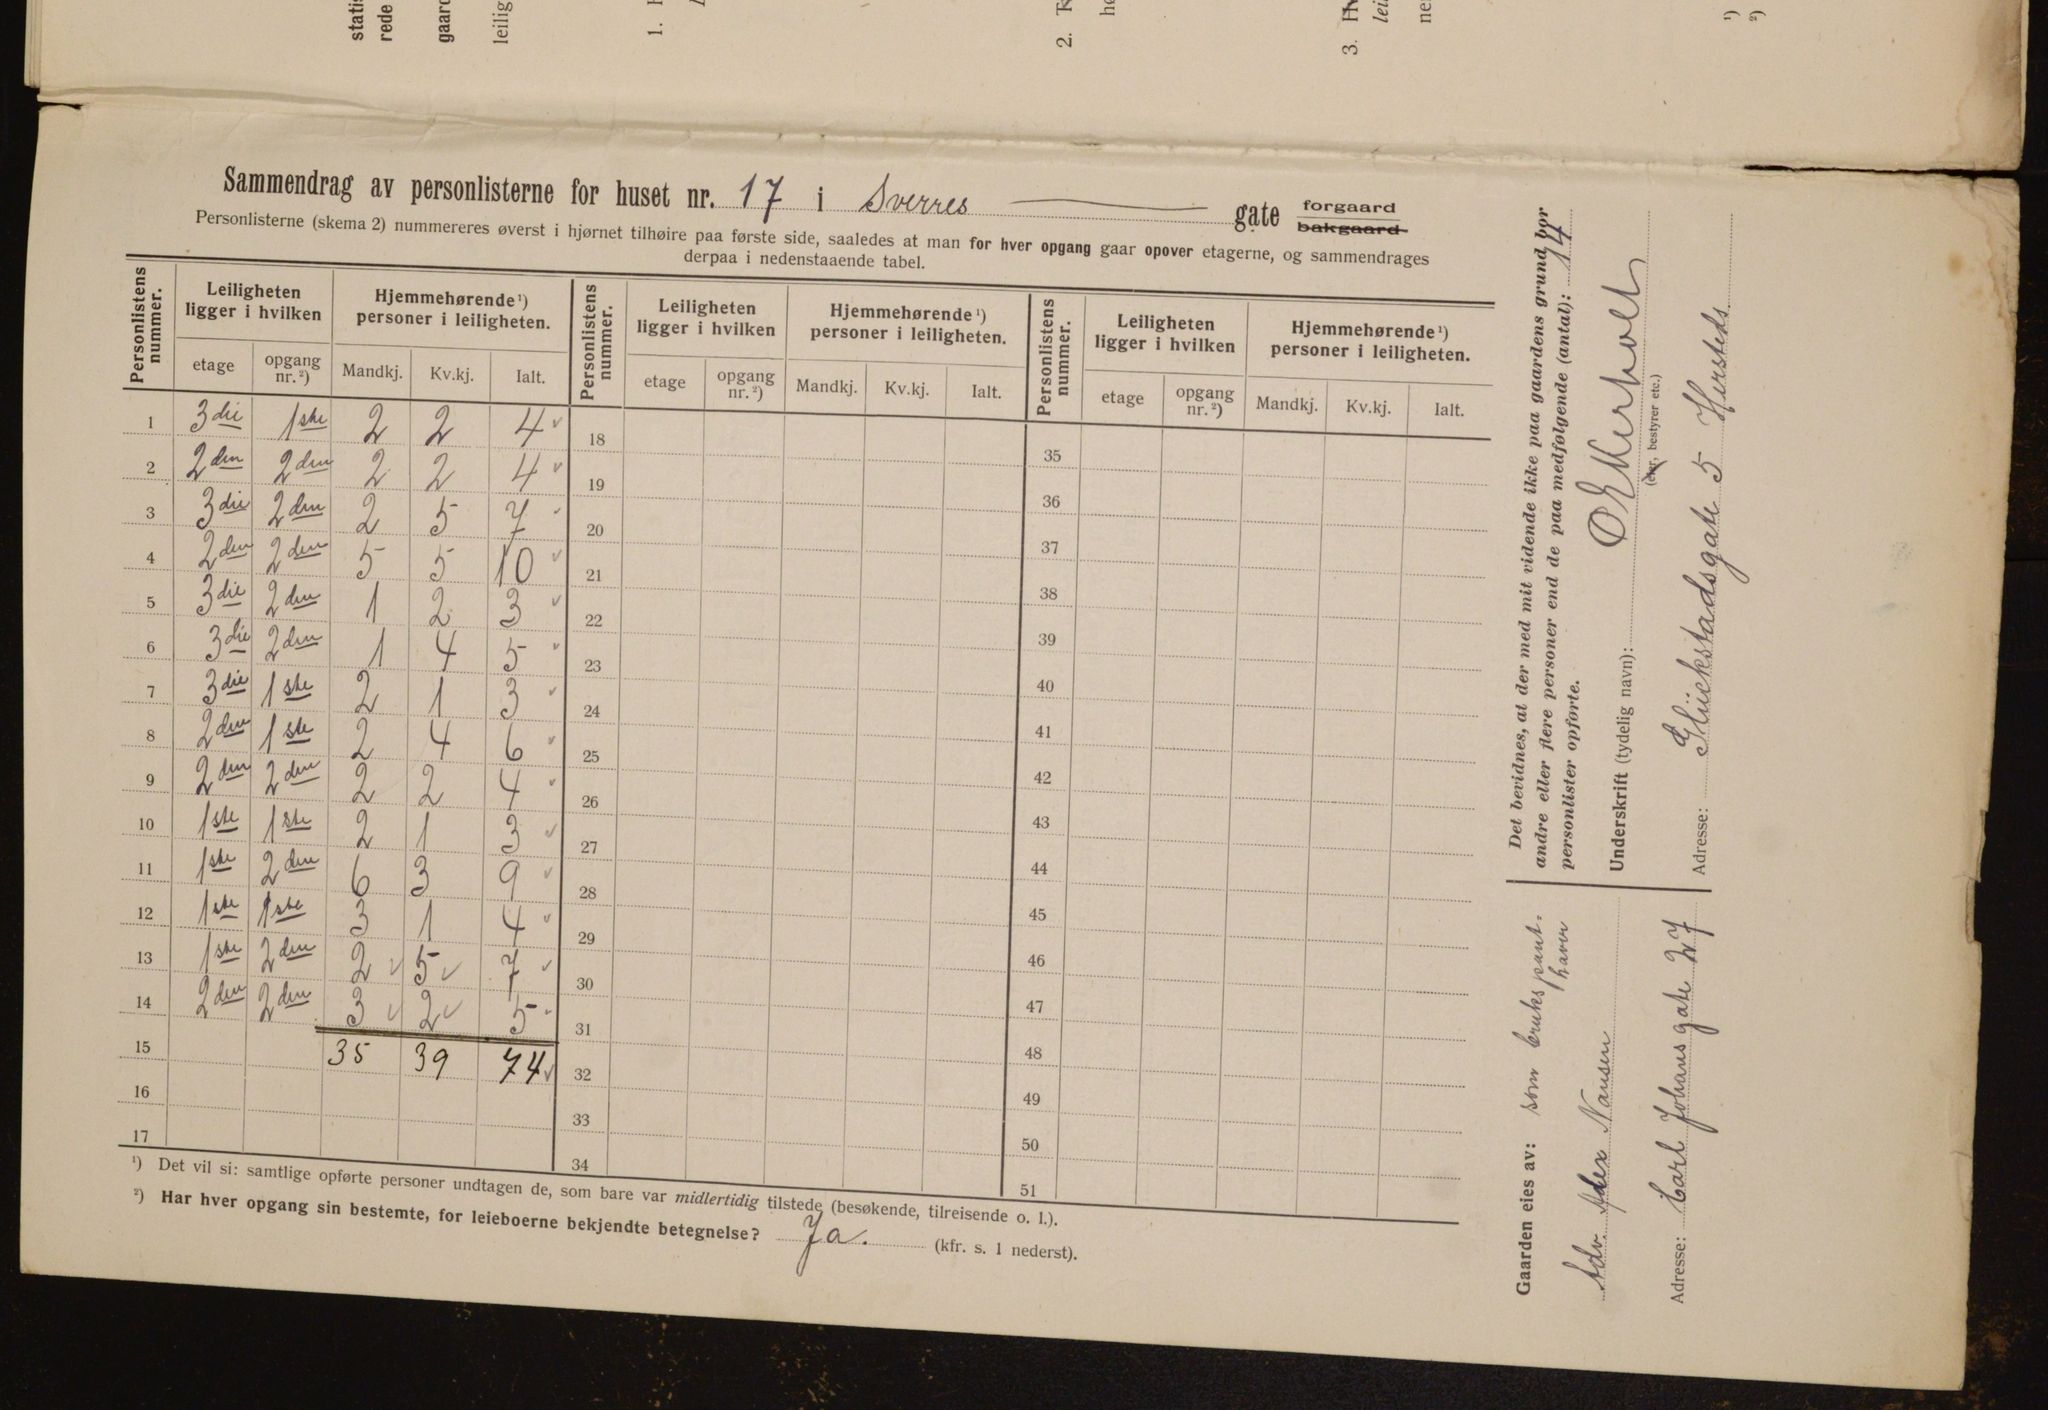 statis
rede
gaard
leilig
1.
2.
3.
lei
ne
¹)
²)
Sammendrag av personlisterne for huset nr. 17 i Sverres gate forgaard bakgaard
Personlisterne (skema 2) nummereres øverst i hjørnet tilhøire paa første side, saaledes at man for hver opgang gaar opover etagerne, og sammendrages
derpaa i nedenstaaende tabel.
Personlistens nummer. Leiligheten ligger i hvilken Hjemmehørende¹) personer i leiligheten. Personlistens nummer. Leiligheten ligger i hvilken Hjemmehørende¹) personer i leiligheten. Personlistens nummer. Leiligheten ligger i hvilken Hjemmehørende¹) personer i leiligheten.
etage opgang nr.²) Mandkj. Kv.kj. Ialt. etage opgang nr.²) Mandkj. Kv.kj. Ialt. etage opgang nr.²) Mandkj. Kv.kj. Ialt.
1 3die 1ste 2 2 4 18 35
2 2den 2den 2 2 4 19 36
3 3die 2den 2 5 7 20 37
4 2den 2den 5 5 10 21 38
5 3die 2den 1 2 3 22 39
6 3die 2den 1 4 5 23 40
7 3die 1ste 2 1 3 24 41
8 2den 1ste 2 4 6 25 42
9 2den 2den 2 2 4 26 43
10 1ste 1ste 2 1 3 27 44
11 1ste 2den 6 3 9 28 45
12 1ste 1ste 3 1 4 29 46
13 1ste 2den 2 5 7 30 47
14 2den 2den 3 2 5 31 48
15 35 39 74 32 49
16 33 50
17 34 51
¹) Det vil si: samtlige opførte personer undtagen de, som bare var midlertidig tilstede (besøkende, tilreisende o. l.).
²) Har hver opgang sin bestemte, for leieboerne bekjendte betegnelse? Ja. (kfr. s. 1 nederst).
Det bevidnes, at der med mit vidende ikke paa gaardens grund bor
andre eller flere personer end de paa medfølgende (antal): 14
personlister opførte.
Underskrift (tydelig navn): O E Merkoll
(eier, bestyrer etc.)
Adresse: Glückstadsgate 5 Hersteds.
Gaarden eies av: som brukspant-
haver
Adv. Alex Nansen
Adresse: Carl Johansgate 27